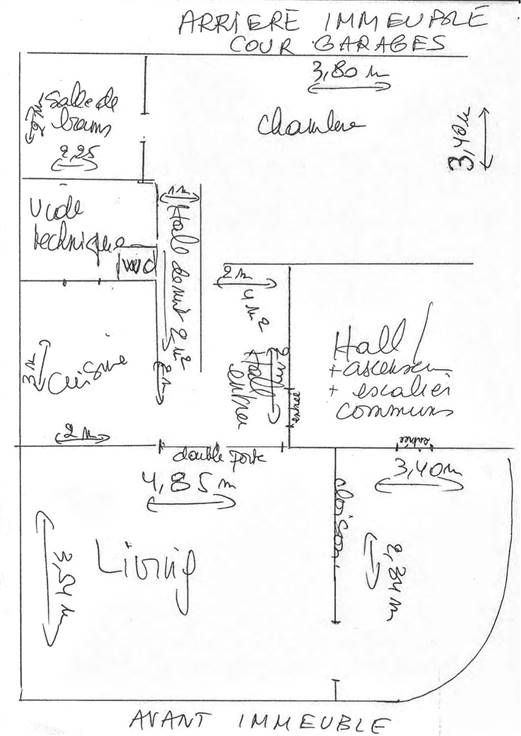 ARRIERE IMMEUBLE
COUR GARAGES
3,80 m
Salle de
bains
2 m
2,25
chambre
3,40 m
Vide
technique
WC
1 m
Hall de nuit 2 m²
2 m
4 m²
Hall
entrée
2 m
entrée
Hall
+ ascenseur
+ escalier
communs
3 m
Cuisine
2 m
2 m
double porte
entrée
4,85 m
3,40 m
cloison
3,54 m
Living
2,84 m
AVANT IMMEUBLE